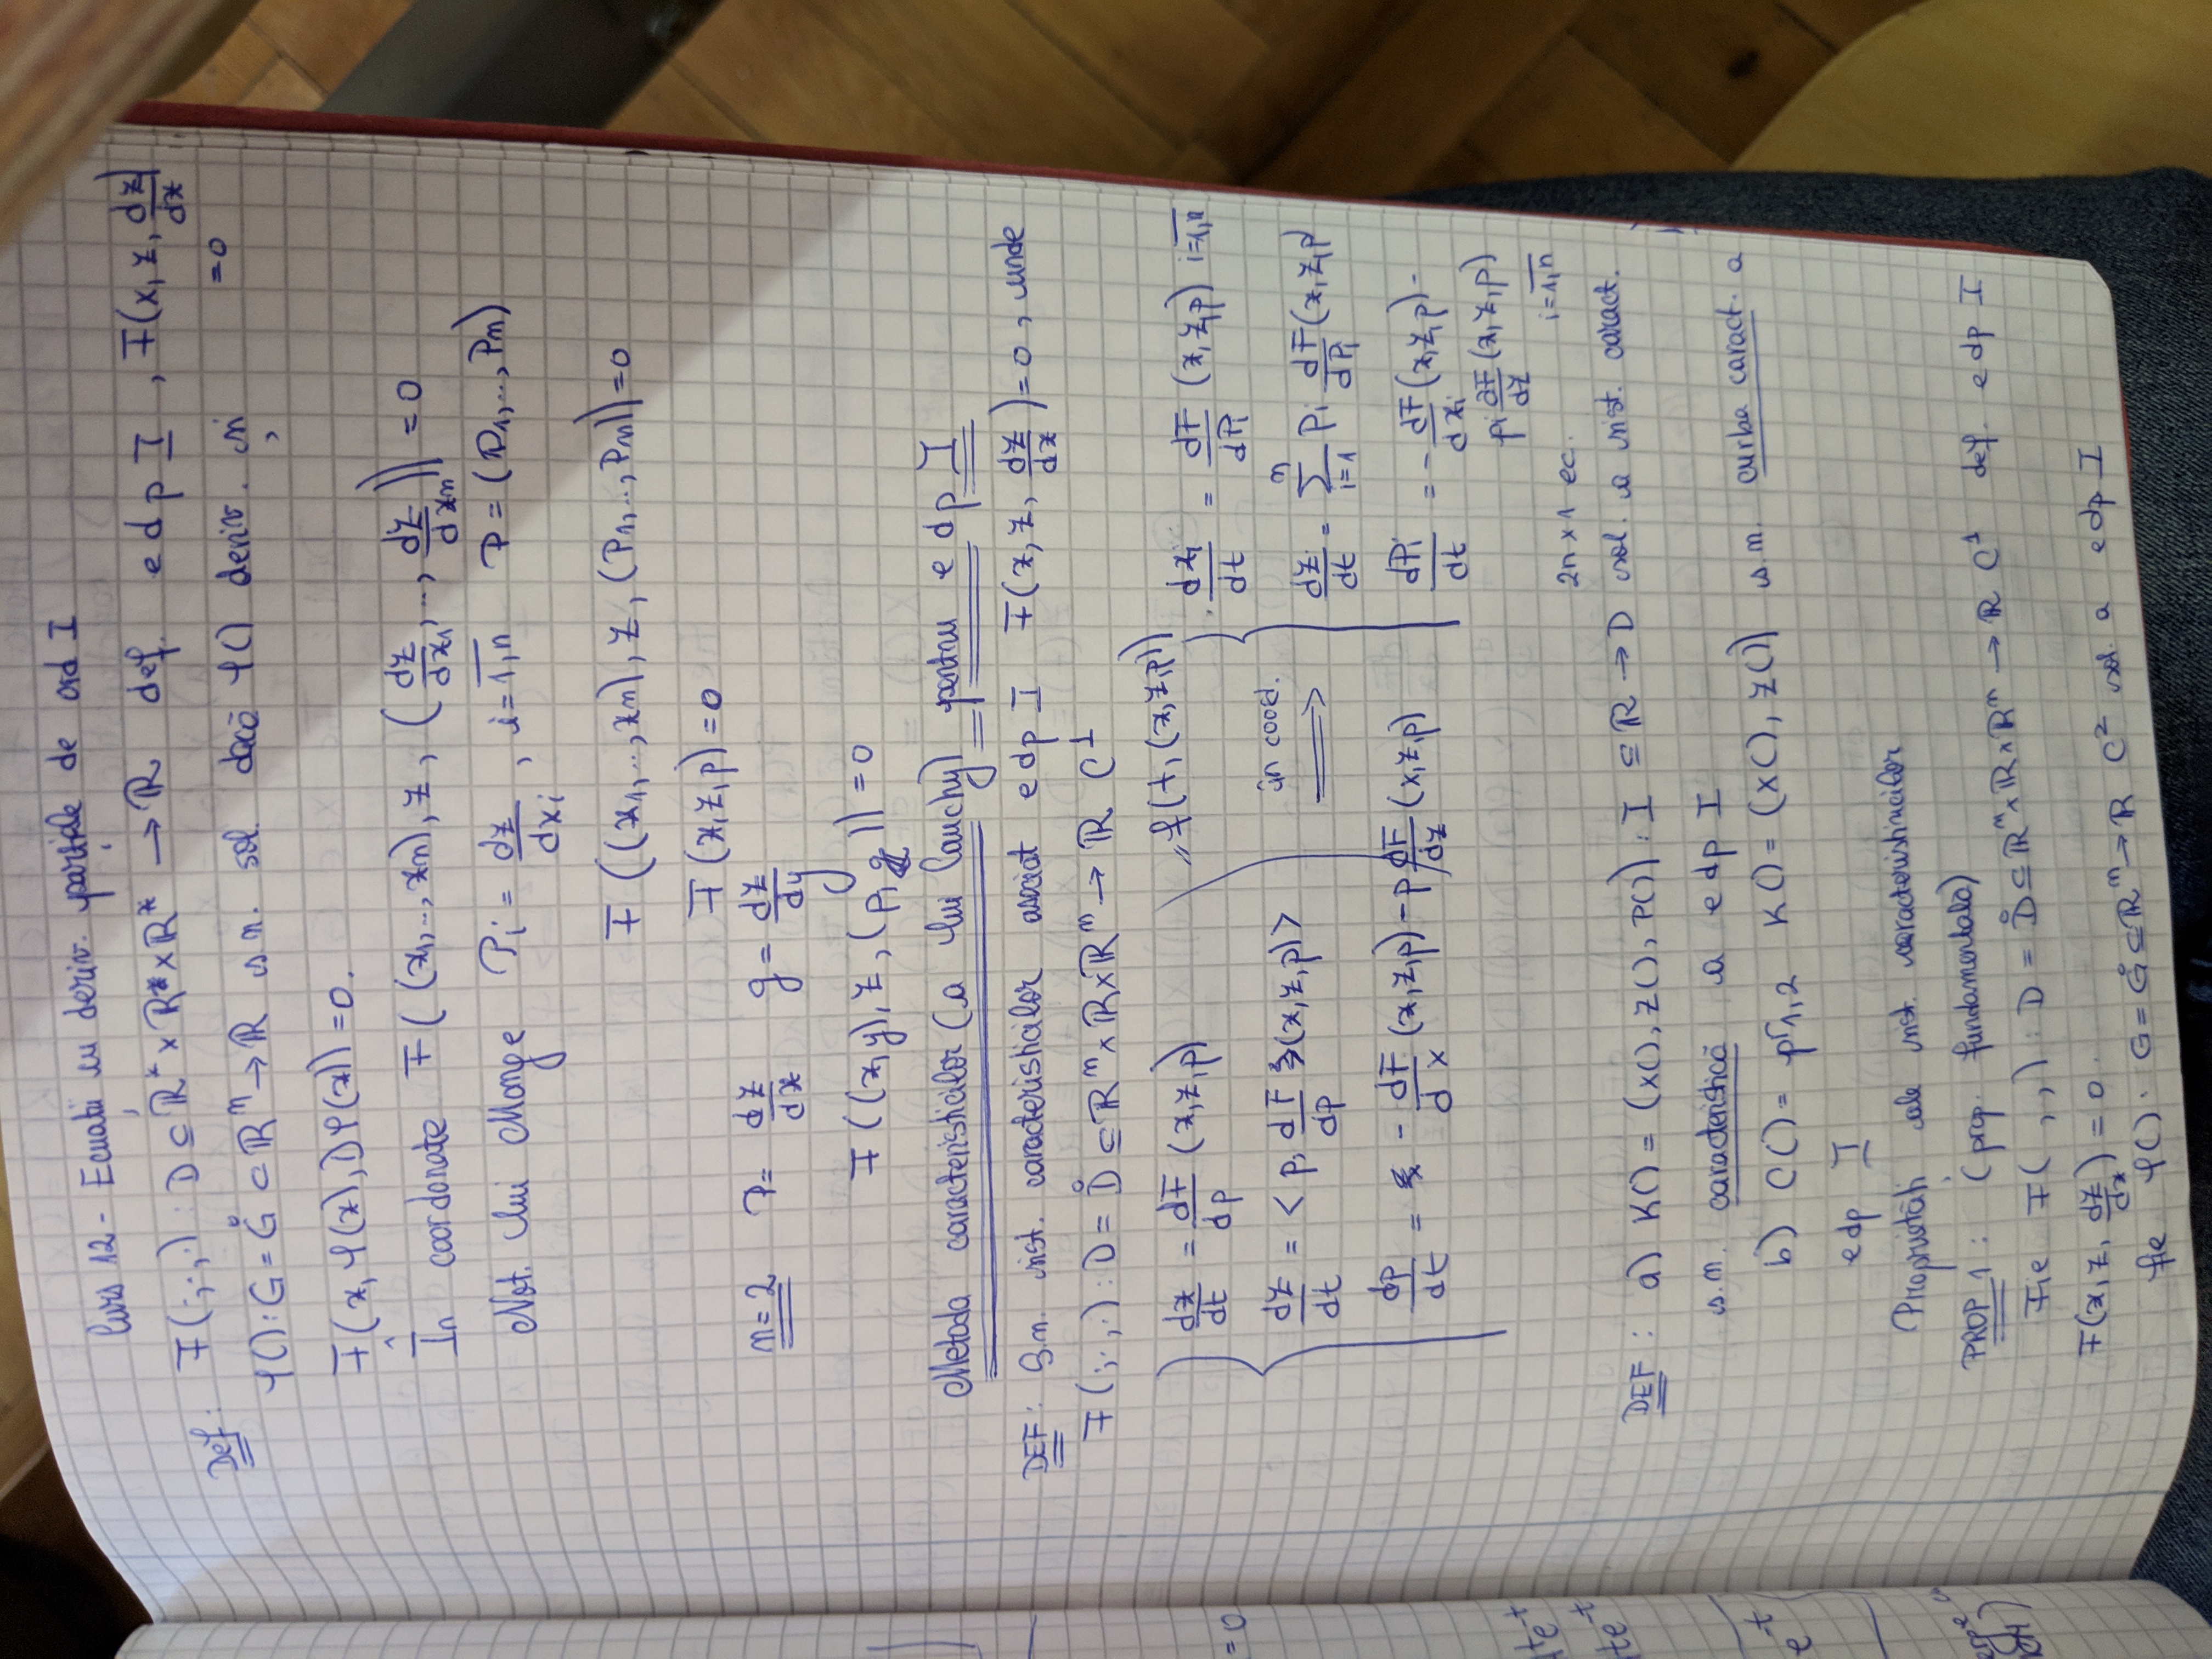 Curs 12 - Ecuații cu deriv. parțiale de ord I
Def: F(·,·,·) : D ⊆ R* × R* × R* → R def. edp I, F(x, z, dz/dx) = 0
φ() : G = G̊ ⊂ R^n → R s.n. sol. dacă φ() deriv. și
F(x, φ(x), Dφ(x)) = 0.
În coordonate F((x1,..,xn), z, (dz/dx1,..,dz/dxn)) = 0
Not. lui Monge Pi = dz/dxi, i=1,n P = (P1,..,Pn)
F((x1,..,xn), z, (P1,..,Pn)) = 0
F(x,z,p) = 0
n=2 P = dz/dx q = dz/dy
F((x,y), z, (p,q)) = 0
Metoda caracteristicilor (a lui Cauchy) pentru edp I
DEF: S.n. sist. caracteristicilor asociat edp I F(x, z, dz/dx) = 0, unde
F(·,·,·) : D = D̊ ⊆ R^n × R × R^n → R C^1
dx/dt = dF/dp (x,z,p)
dz/dt = <p, dF/dp (x,z,p)>
dp/dt = - dF/dx (x,z,p) - p dF/dz (x,z,p)
= f(t, (x,z,p))
în coord. ⟹
dxi/dt = dF/dPi (x,z,p) i=1,n
dz/dt = Σ i=1 n Pi dF/dPi (x,z,p)
dPi/dt = - dF/dxi (x,z,p) -
pi ∂F/dz (x,z,p)
i=1,n
2n × 1 ec.
DEF: a) K() = (X(), Z(), P()) : I ⊆ R → D sol. a sist. caract.
s.n. caracteristică a edp I
b) C() = pr1,2 K() = (X(), Z()) s.n. curba caract. a
edp I
Proprietăți ale sist. caracteristincilor
PROP 1: (prop. fundamentală)
Fie F( , , ) : D = D̊ ⊆ R^n × R × R^n → R C^1 def. edp I
F(x, z, dz/dx) = 0.
fie φ() : G = G̊ ⊆ R^n → R C^2 sol. a edp I